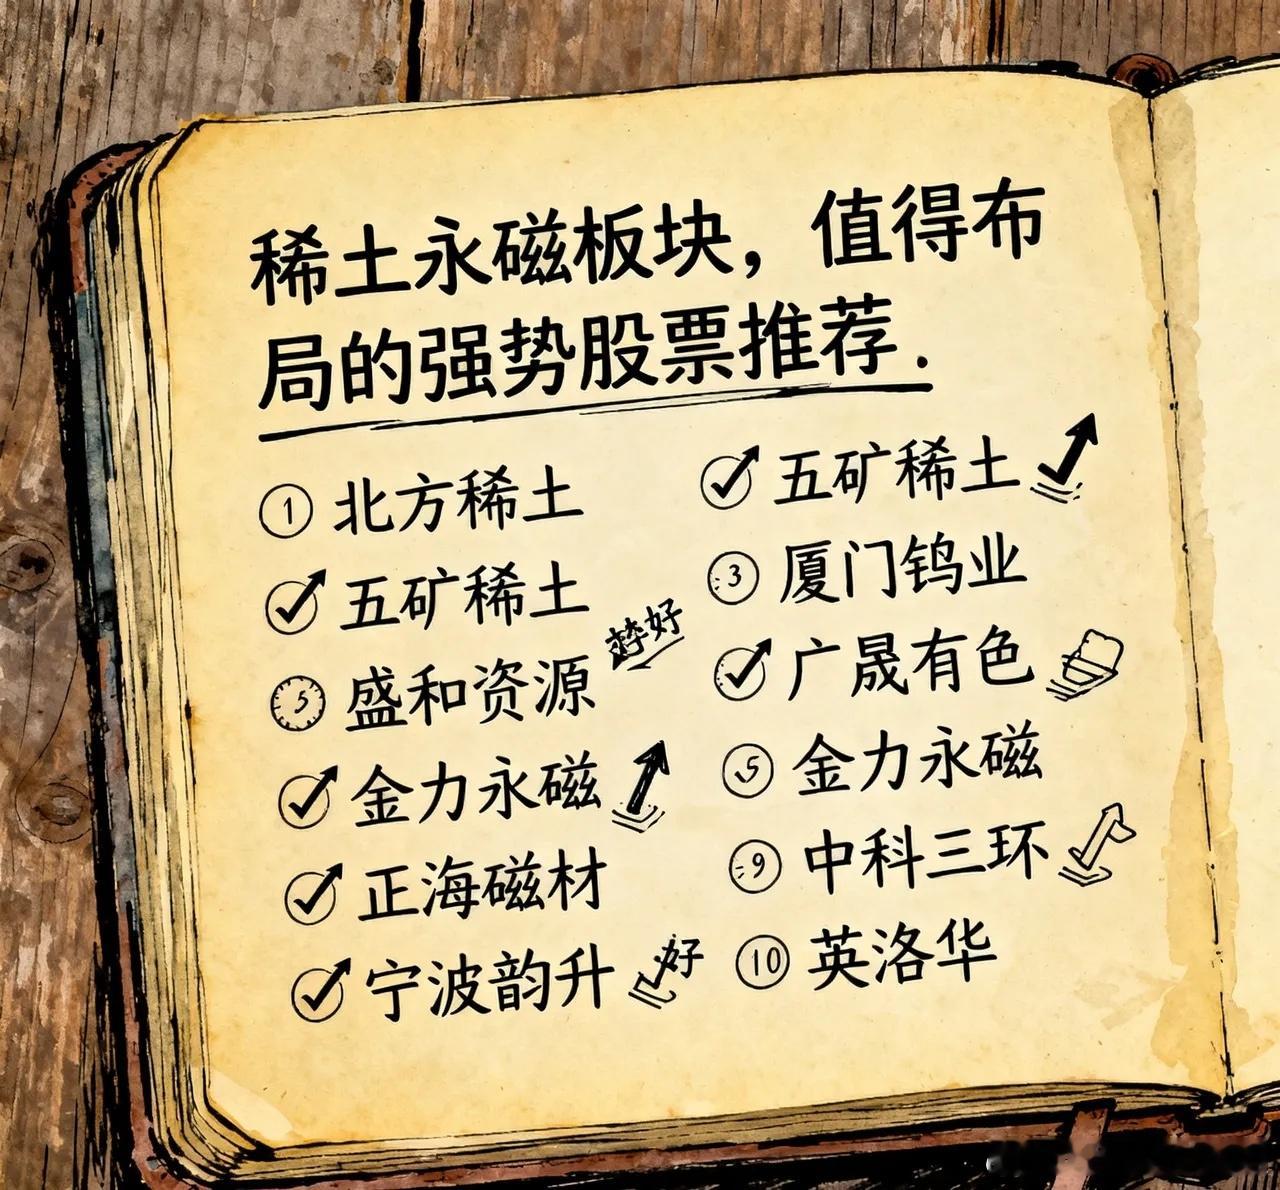 稀土永磁板块，值得布
局的强势股票推荐.
① 北方稀土
五矿稀土
5 盛和资源
金力永磁
正海磁材
宁波韵升 好
五矿稀土
3 厦门钨业
广晟有色
5 金力永磁
9 中科三环
⑩ 英洛华